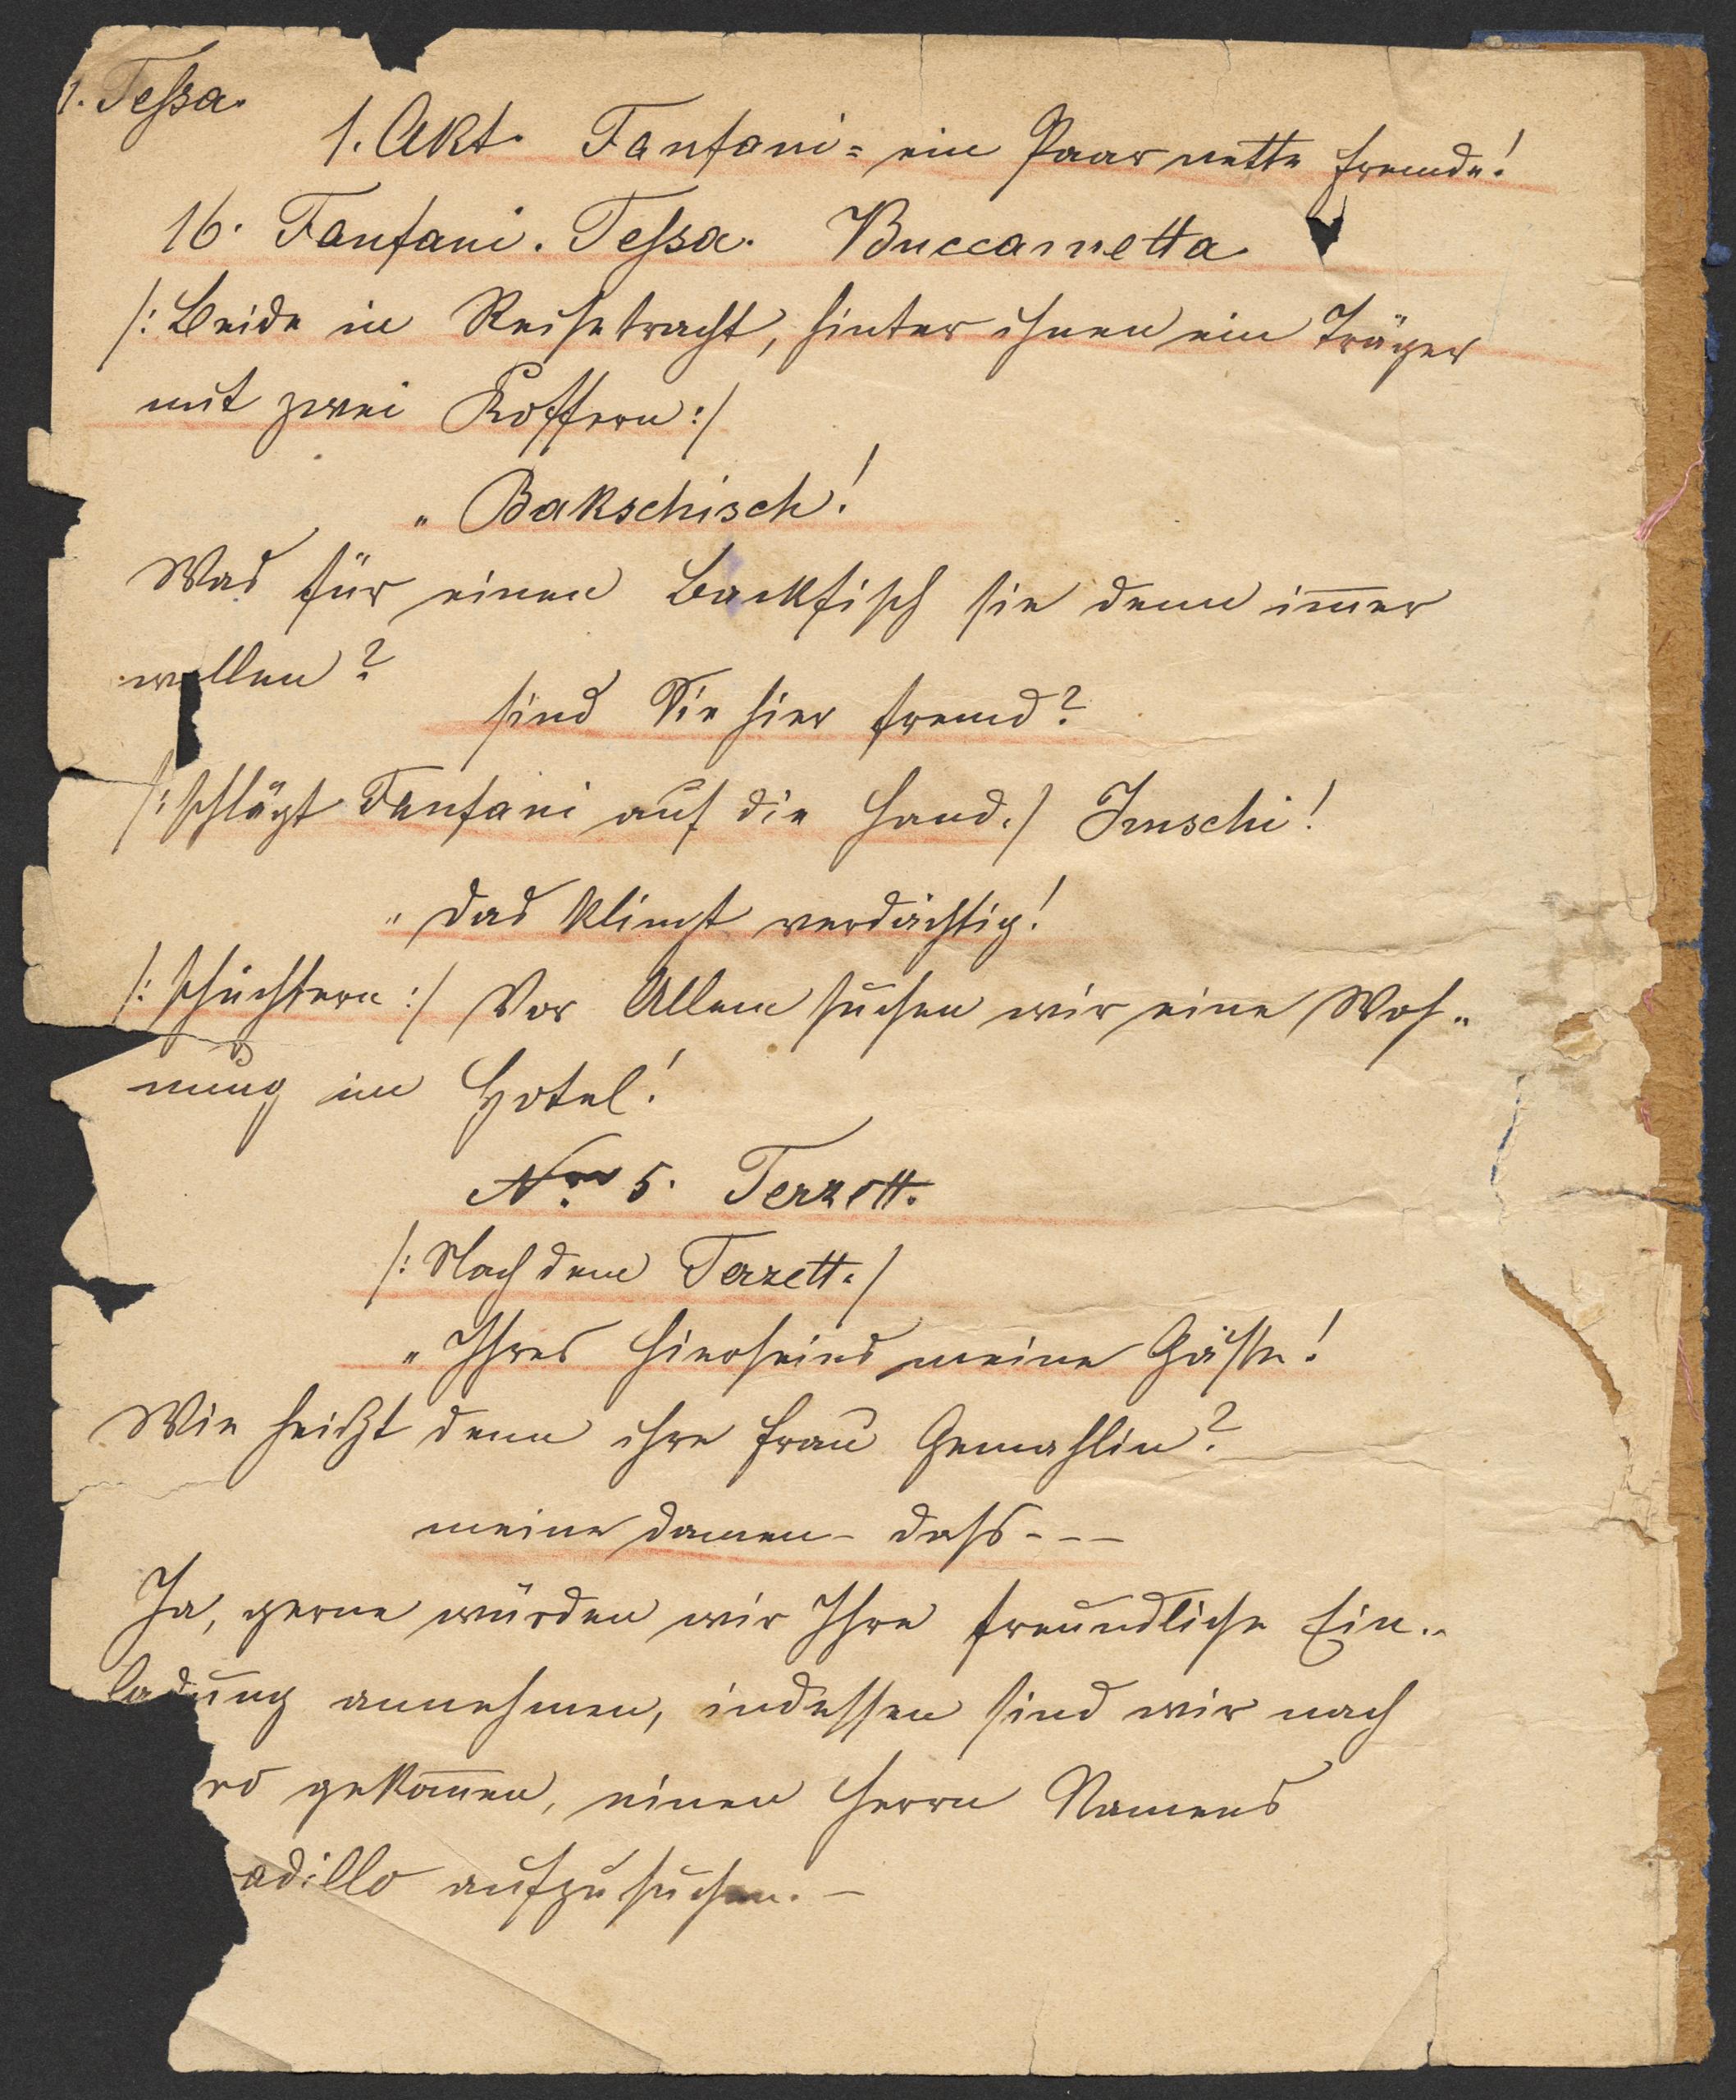 1. Teßa.
1. Akt. Fanfani = ein Paar nette Fremde!
16. Fanfani. Teßa. Buccametta
/: Beide in Reisetracht, hinter ihnen ein Träger
mit zwei Koffern :/
" Bakschisch!
Was für einen Backfisch sie denn im̅er
wollen?
sind Sie hier fremd?
/: schlägt Fanfani auf die Hand. / Imschi!
" das klingt verdächtig!
/: schüchtern :/ Vor Allem suchen wir eine Woh-
nung im Hotel!
Nro 5. Terzett.
/: Nach dem Terzett. /
" Ihres Hierseins meine Gäste!
Wie heißt denn ihre Frau Gemahlin?
meine Damen - dass - - -
Ja, gerne würden wir Ihre freundliche Ein-
ladung annehmen, indessen sind wir nach
ro gekom̅en, einen Herrn Namens
adillo aufzusuchen. -